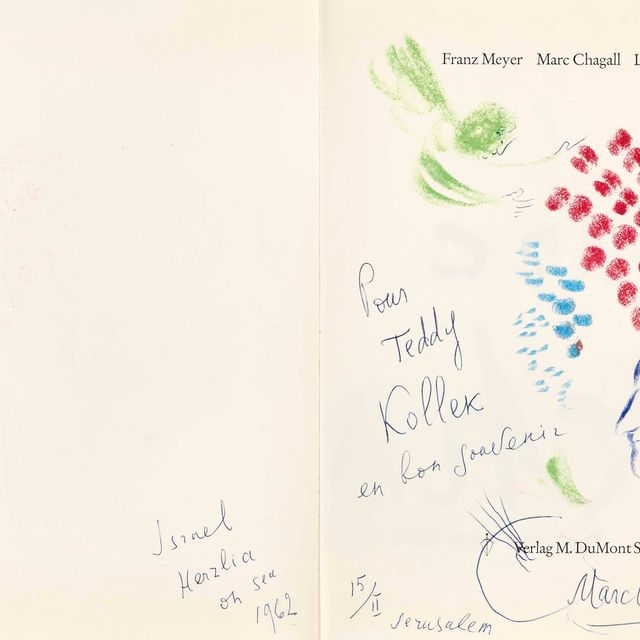 Israel
Herzlia
on sea
1962
Franz Meyer Marc Chagall L
Pour
Teddy
Kollek
en bon souvenir
Verlag M. DuMont S
Marc
15/II
Jerusalem